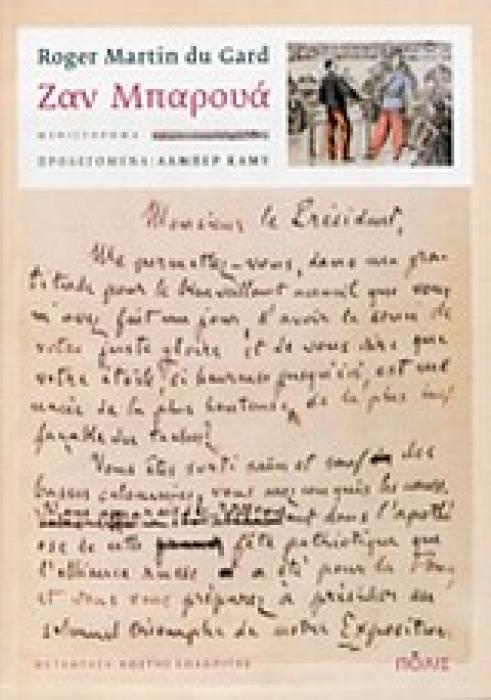 Roger Martin du Gard
Ζαν Μπαρουά
ΜΥΘΙΣΤΟΡΗΜΑ
ΠΡΟΛΕΓΟΜΕΝΑ: ΑΛΜΠΕΡ ΚΑΜΥ
Monsieur le Président,
Me permettez-vous, dans ma gra-
titude pour le bienveillant accueil que vous
m'avez fait un jour, d'avoir le souci de
votre juste gloire et de vous dire que
votre étoile, si heureuse jusqu'ici, est me
nacée de la plus honteuse, de la plus inef
façable des taches?
Vous êtes sorti sain et sauf des
basses calomnies, vous avez conquis les cœurs.
dans l'apothé
ose de cette fête patriotique que
l'alliance russe a été pour la
et vous vous préparez à présider au
solennel triomphe de notre Exposition
ΜΕΤΑΦΡΑΣΗ ΚΩΣΤΗΣ
ΠΟΛΙΣ